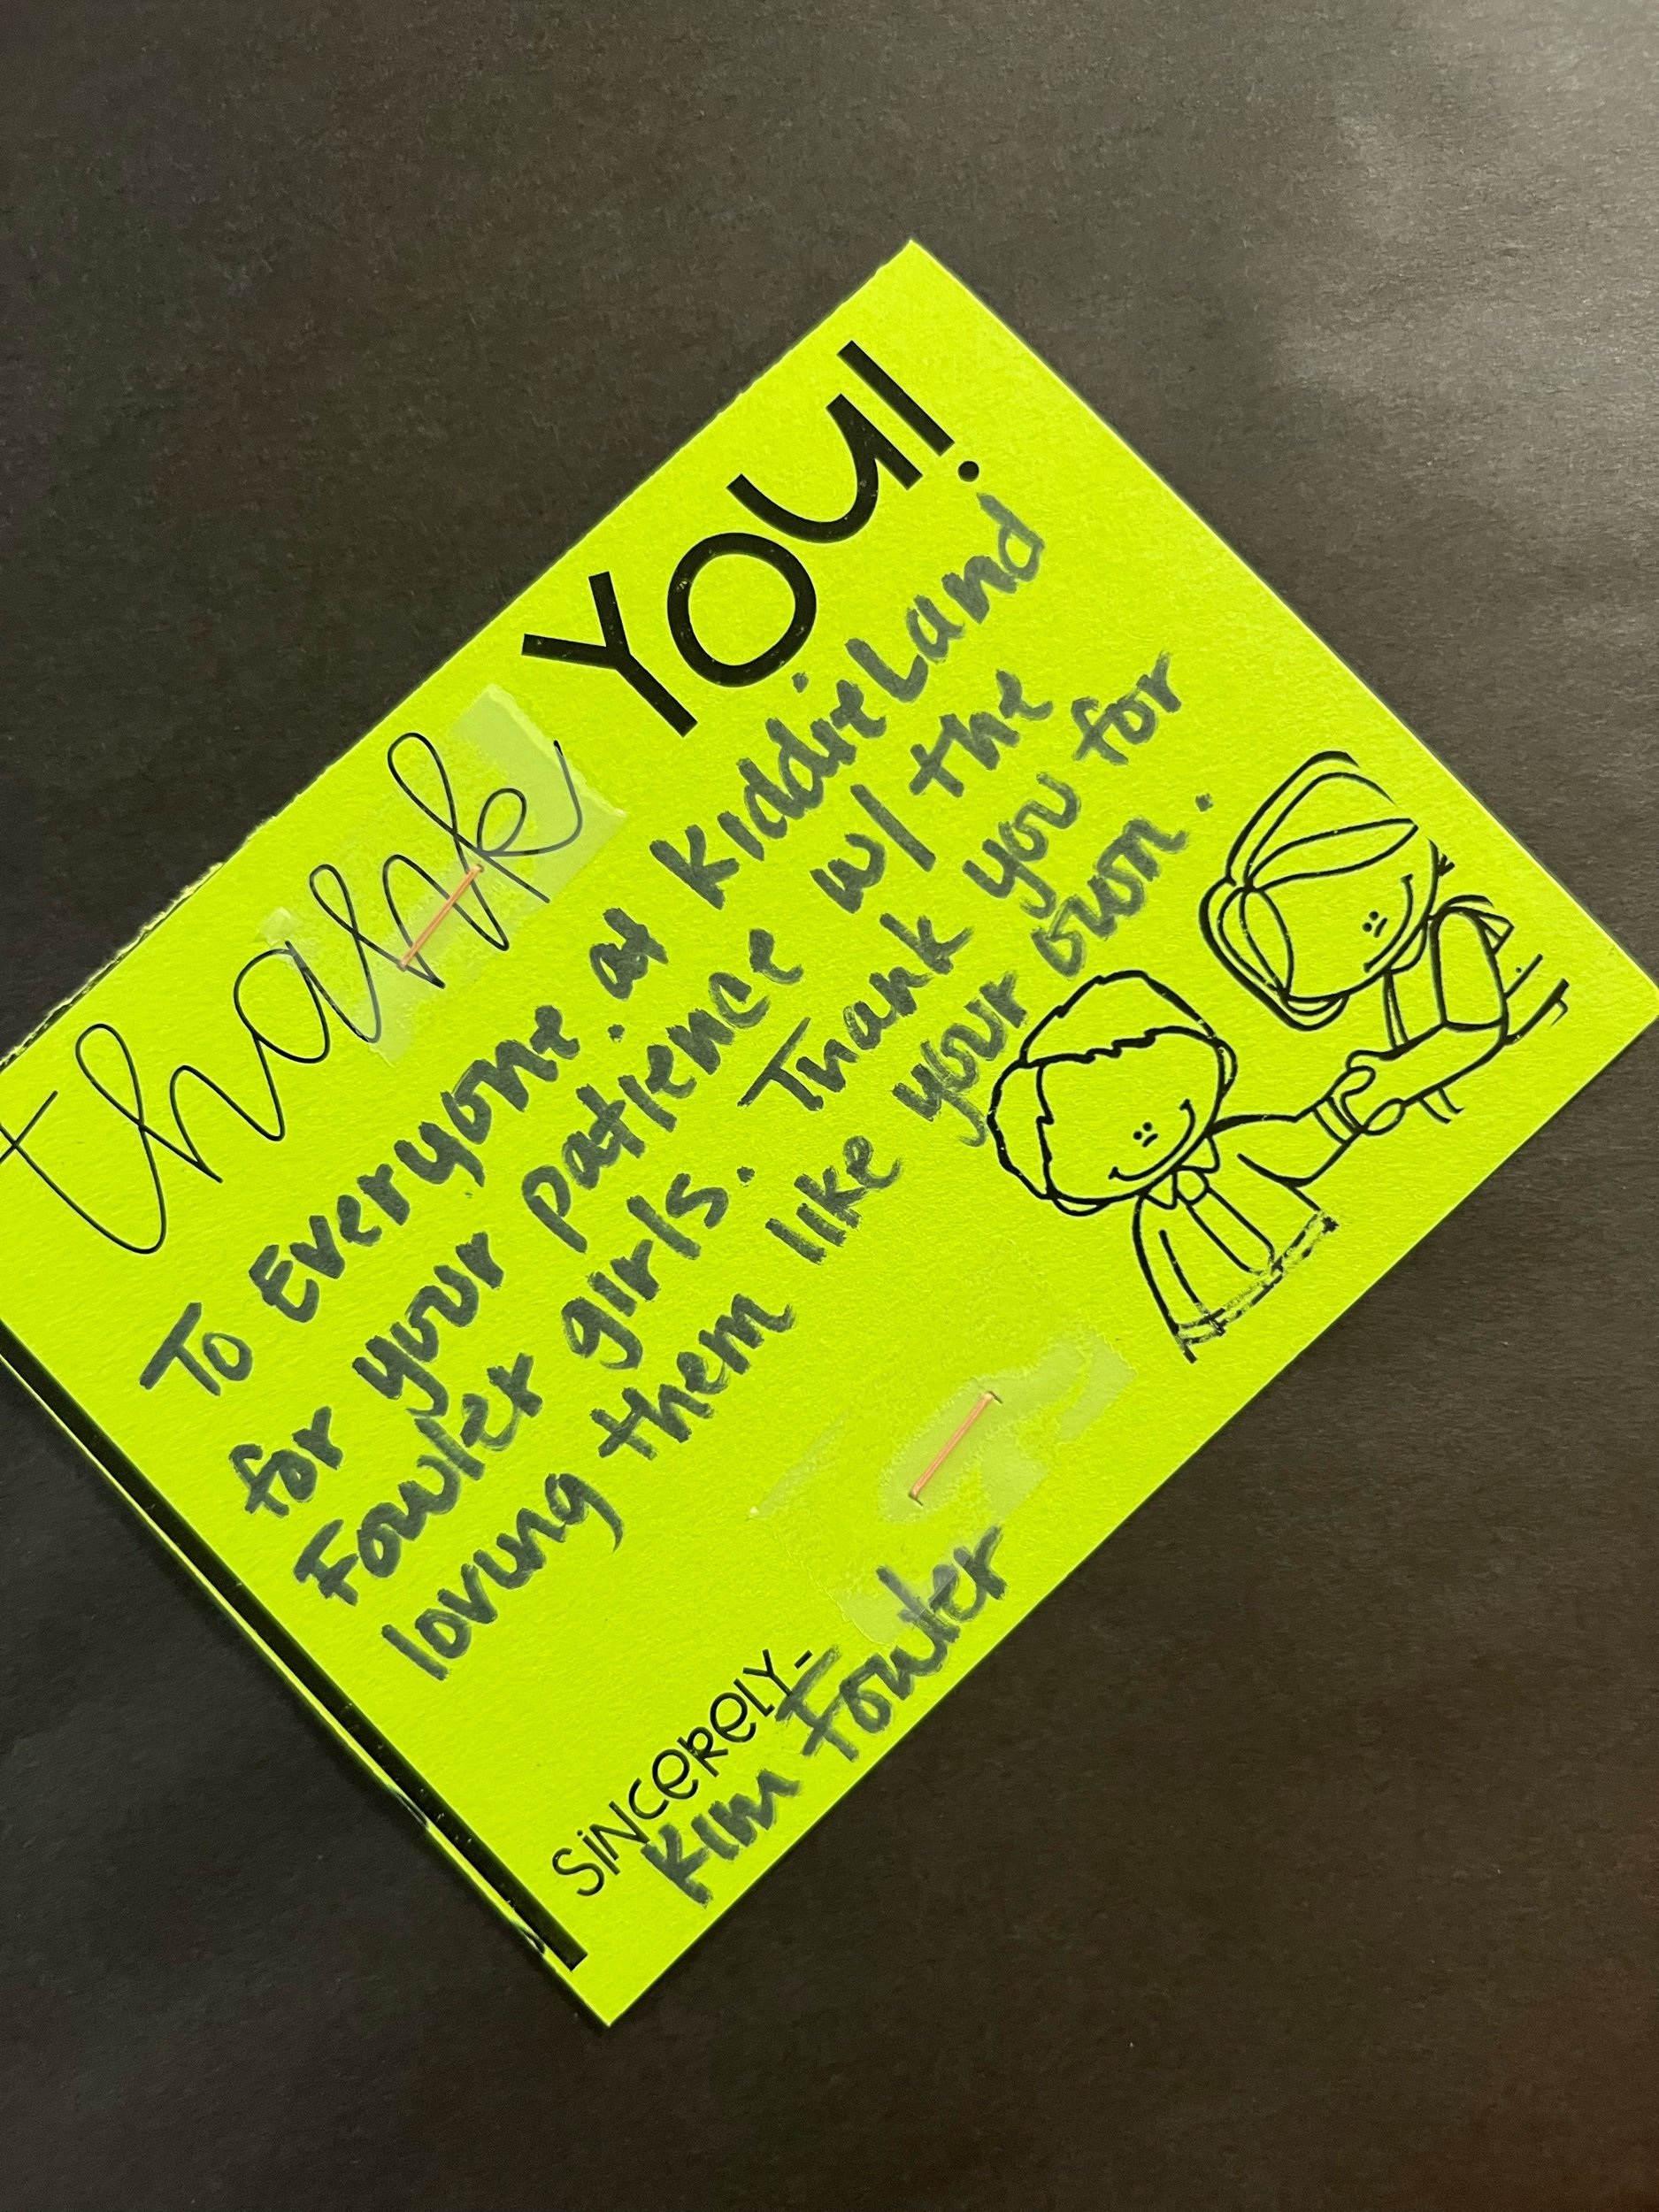 thank YOU!
To Everyone at KiddieLand
for your patience w/ the
Fowler girls. Thank you for
loving them like your own.
SINCERELY-
Kim Fowler